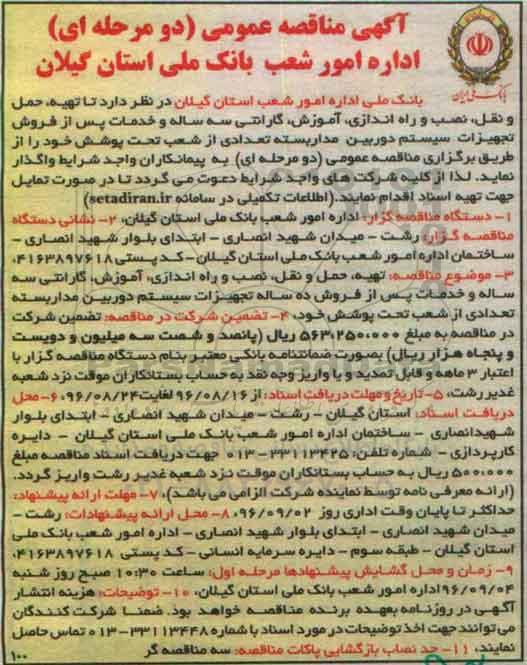 آگهی مناقصه عمومی (دو مرحله ای)
اداره امور شعب بانک ملی استان گیلان
بانک ملی ایران
بانک ملی اداره امور شعب استان گیلان در نظر دارد تا تهیه، حمل
و نقل، نصب و راه اندازی، آموزش، گارانتی سه ساله و خدمات پس از فروش
تجهیزات سیستم دوربین مداربسته تعدادی از شعب تحت پوشش خود را از
طریق برگزاری مناقصه عمومی (دو مرحله ای) به پیمانکاران واجد شرایط واگذار
نماید. لذا از کلیه شرکت های واجد شرایط دعوت می گردد تا در صورت تمایل
جهت تهیه اسناد اقدام نمایند.(اطلاعات تکمیلی در سامانه setadiran.ir)
۱- دستگاه مناقصه گزار: اداره امور شعب بانک ملی استان گیلان، ۲- نشانی دستگاه
مناقصه گزار: رشت - میدان شهید انصاری - ابتدای بلوار شهید انصاری -
ساختمان اداره امور شعب بانک ملی استان گیلان- کد پستی ۴۱۶۳۸۹۷۶۱۸،
۳- موضوع مناقصه: تهیه، حمل و نقل، نصب و راه اندازی، آموزش، گارانتی سه
ساله و خدمات پس از فروش ده ساله تجهیزات سیستم دوربین مداربسته
تعدادی از شعب تحت پوشش خود، ۴- تضمین شرکت در مناقصه: تضمین شرکت
در مناقصه به مبلغ ۵۶۳/۲۵۰/۰۰۰ ریال (پانصد و شصت سه میلیون و دویست
و پنجاه هزار ریال) بصورت ضمانتنامه بانکی معتبر بنام دستگاه مناقصه گزار با
اعتبار ۳ ماهه و قابل تمدید و یا واریز وجه نقد به حساب بستانکاران موقت نزد شعبه
غدیر رشت، ۵- تاریخ و مهلت دریافت اسناد: از ۹۶/۰۸/۱۶ لغایت ۹۶/۰۸/۲۴، ۶- محل
دریافت اسناد: استان گیلان - رشت - میدان شهید انصاری - ابتدای بلوار
شهید انصاری - ساختمان اداره امور شعب بانک ملی استان گیلان - دایره
کارپردازی - شماره تلفن: ۳۳۱۱۳۴۲۵-۰۱۳ جهت دریافت اسناد مناقصه مبلغ
۵۰۰/۰۰۰ ریال به حساب بستانکاران موقت نزد شعبه غدیر رشت واریز گردد.
(ارائه معرفی نامه توسط نماینده شرکت الزامی می باشد)، ۷- مهلت ارائه پیشنهاد:
حداکثر تا پایان وقت اداری روز ۹۶/۰۹/۰۲، ۸- محل ارائه پیشنهادات: رشت -
میدان شهید انصاری - ابتدای بلوار شهید انصاری - اداره امور شعب بانک ملی
استان گیلان - طبقه سوم - دایره سرمایه انسانی - کد پستی ۴۱۶۳۸۹۷۶۱۸،
۹- زمان و محل گشایش پیشنهادها مرحله اول: ساعت ۱۰:۳۰ صبح روز شنبه
۹۶/۰۹/۰۴ اداره امور شعب بانک ملی استان گیلان، ۱۰- توضیحات: هزینه انتشار
آگهی در روزنامه بعهده برنده مناقصه خواهد بود. ضمنا شرکت کنندگان
می توانند جهت اخذ توضیحات در مورد اسناد با شماره ۳۳۱۱۳۴۴۸-۰۱۳ تماس حاصل
نمایند، ۱۱- حد نصاب بازگشایی پاکات مناقصه: سه مناقصه گر
۱۰۰